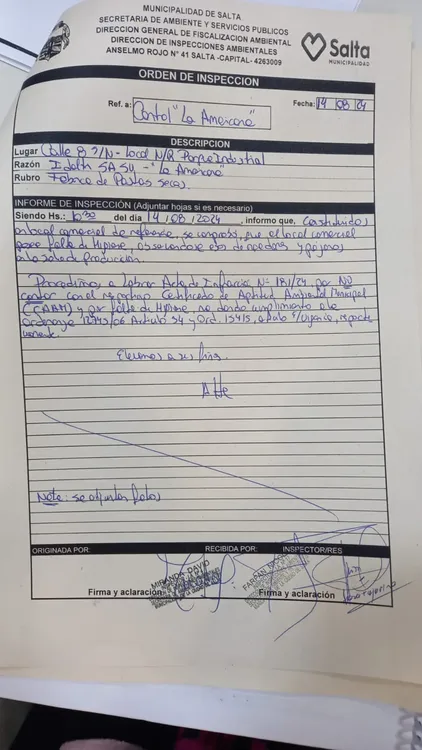 MUNICIPALIDAD DE SALTA
SECRETARIA DE AMBIENTE Y SERVICIOS PUBLICOS
DIRECCION GENERAL DE FISCALIZACION AMBIENTAL
DIRECCION DE INSPECCIONES AMBIENTALES
ANSELMO ROJO N° 41 SALTA -CAPITAL- 4263009
Salta
MUNICIPALIDAD
ORDEN DE INSPECCION
Ref. a: Control "La Americana"
Fecha: 14 08 24
DESCRIPCION
Lugar Calle 8 S/N - Local N/R Parque Industrial
Razón SASU - "La Americana"
Rubro Fabrica de Pastas secas.
INFORME DE INSPECCIÓN (Adjuntar hojas si es necesario)
Siendo Hs.: 10:30 del día 14/08/2024, informo que, Constituidos
en local comercial de referencia, se comprobó que el local comercial
posee falta de Higiene, observandose de roedores y pajaros
en la sala de producción.
Procedimos a labrar Acta de Infracción N° 181/24 por NO
contar con el Certificado de Aptitud Ambiental Municipal
(CAAM) y por falta de Higiene, no dando cumplimiento a la
Ordenanza 12745/06 Articulo 34 y Ord. 15415,
Elevamos a sus fines.
Atte
Nota: se adjuntan fotos
ORIGINADA POR:
RECIBIDA POR:
INSPECTOR/RES
MIRANDA DAVID
Firma y aclaración
Firma y aclaración